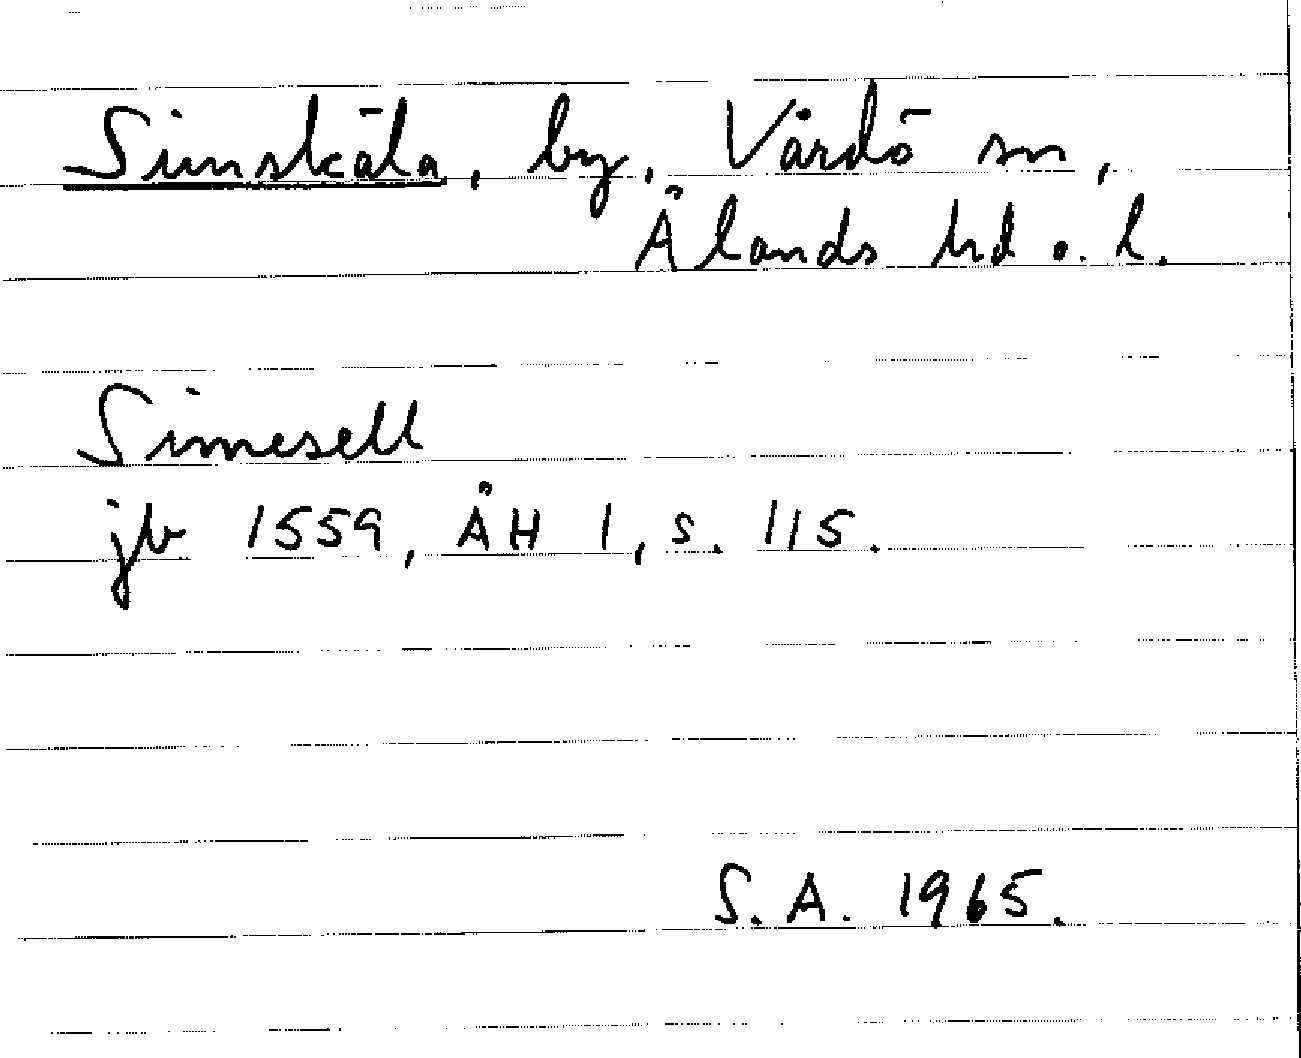 Simskäla, by, Vårdö sn,
Ålands hd o. l.
Simesell
jb 1559, ÅH 1, s. 115.
S.A. 1965.